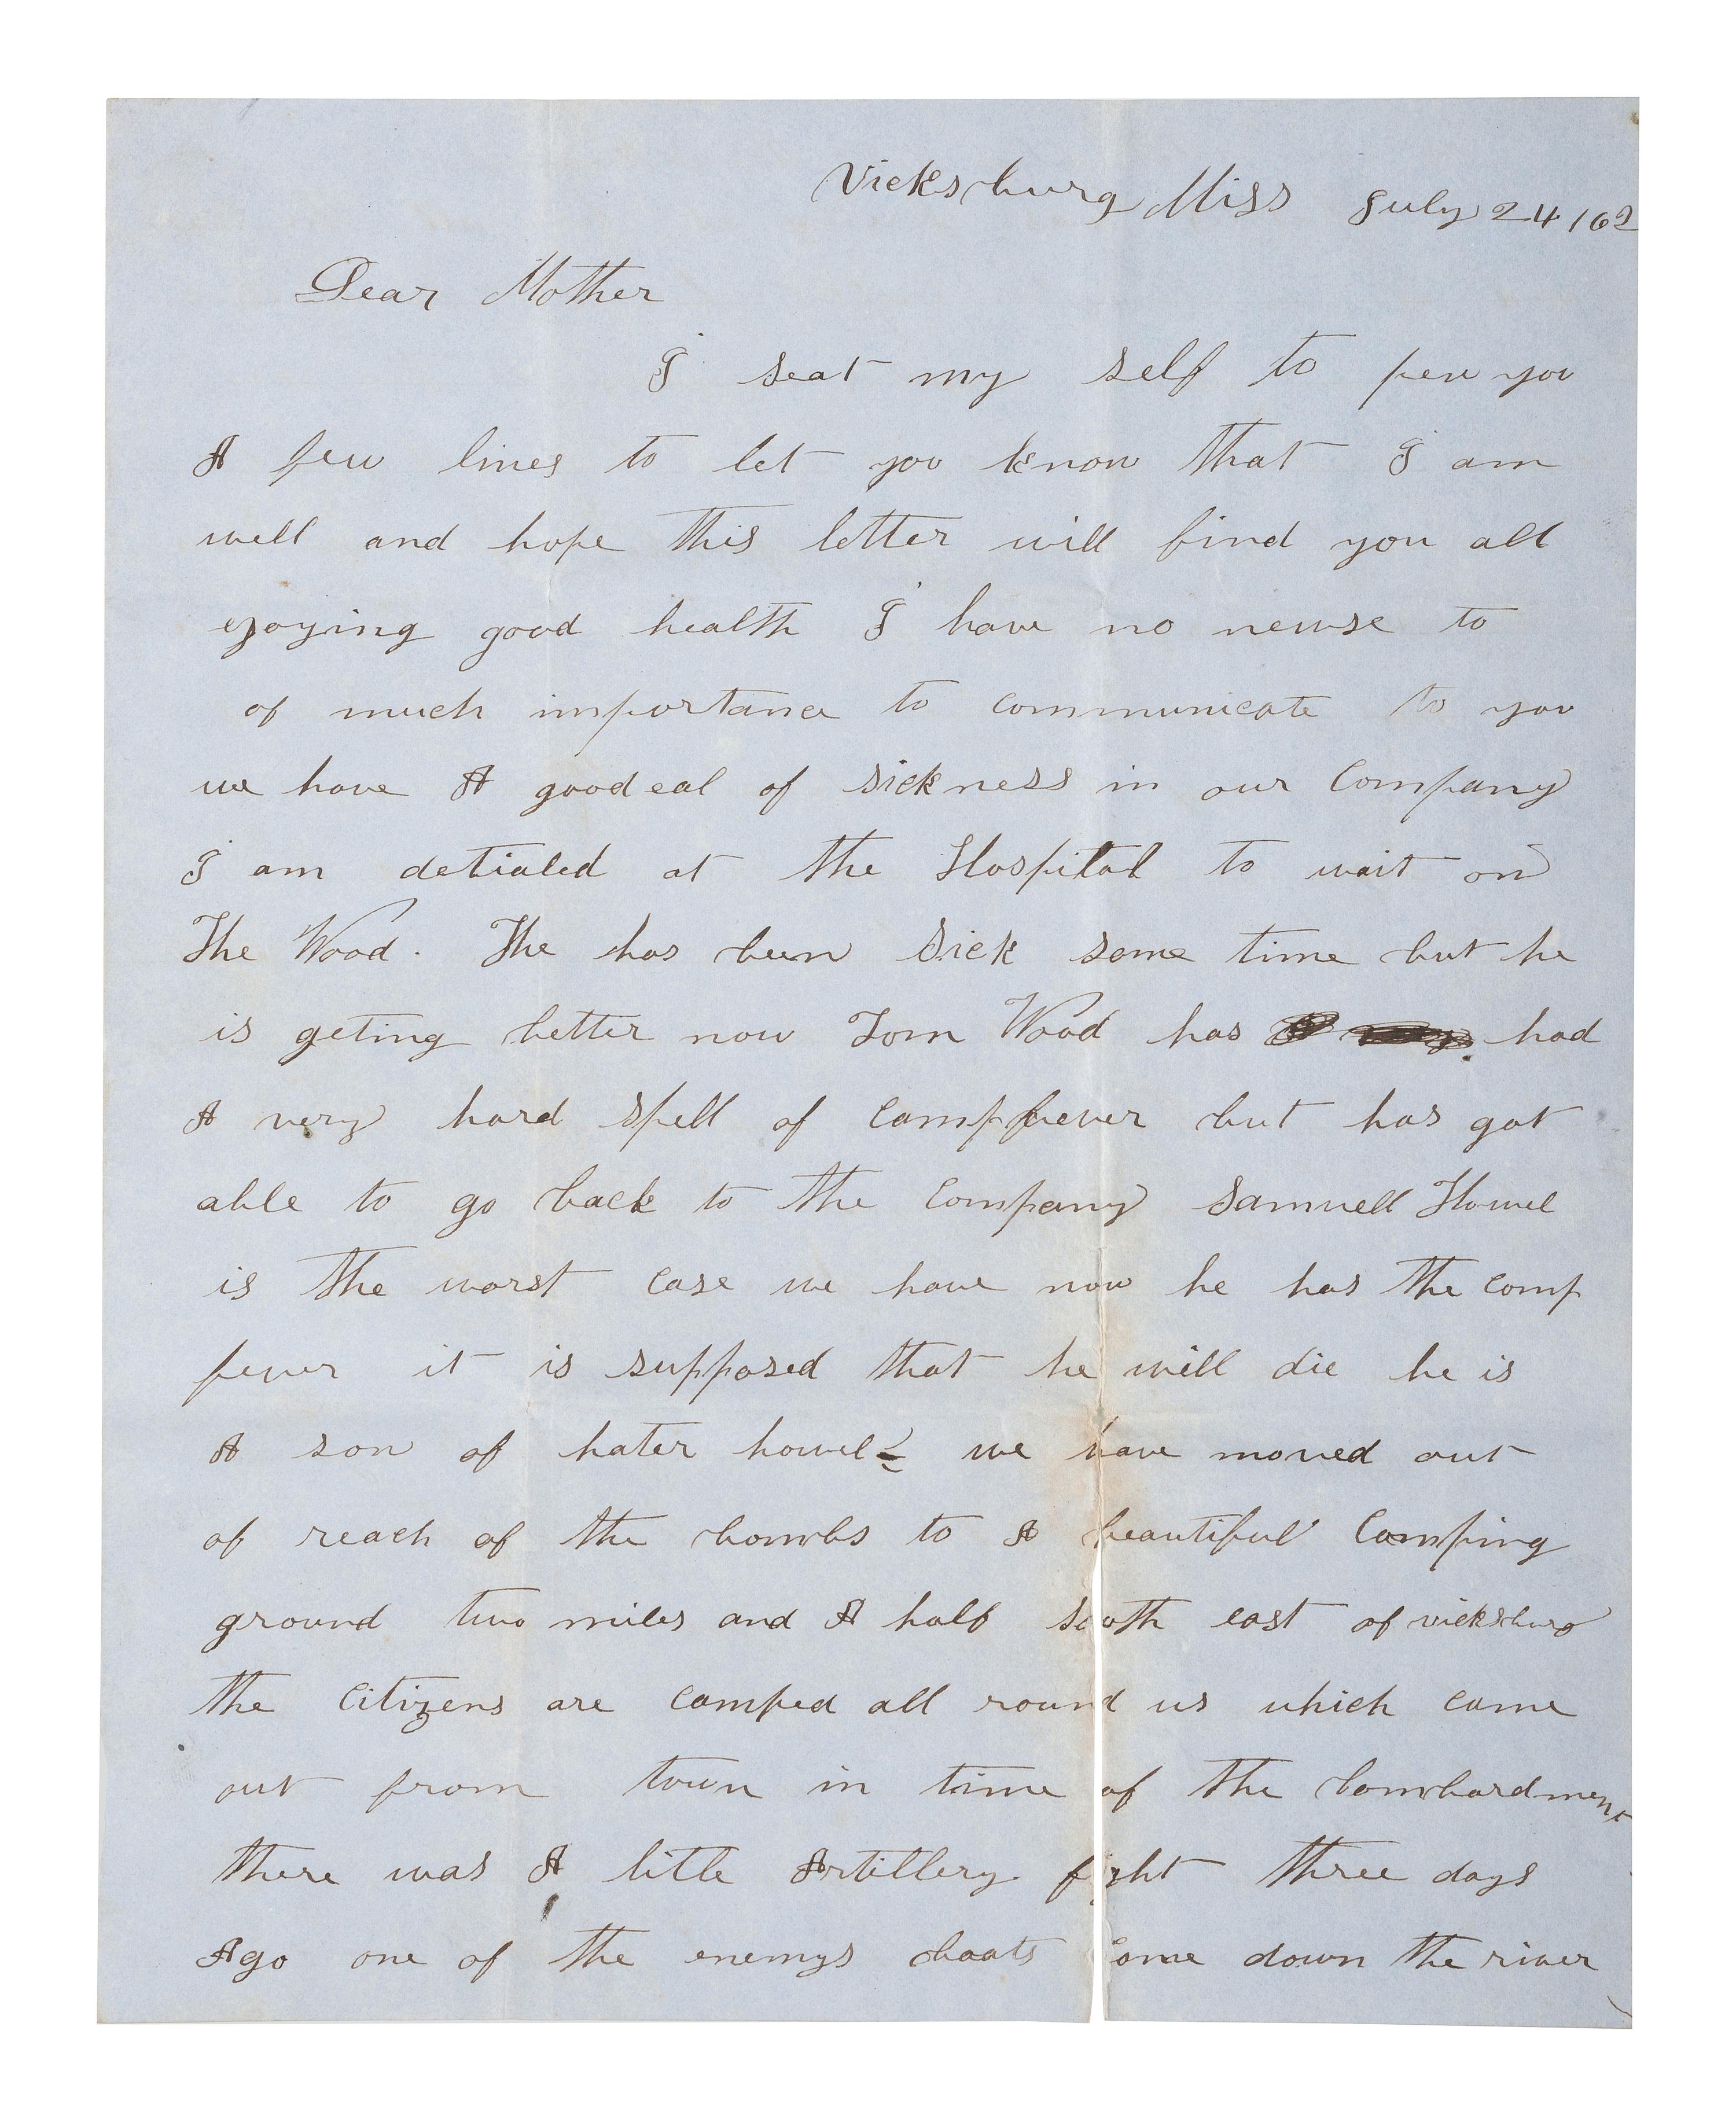 Vicksburg Miss July 24 / 62
Dear Mother
I seat my self to pen you
A few lines to let you know that I am
well and hope this letter will find you all
ejoying good health I have no newse to
of much importance to communicate to you
we have A goodeal of sickness in our Company
I am detialed at the Hospital to wait on
The Wood. The has been sick some time but he
is geting better now Tom Wood has had
A very hard spell of campfeever but has got
able to go back to the Company Samuell Howel
is the worst case we have now he has the camp
fever it is supposed that he will die he is
A son of hater howel we have moved out
of reach of the bombs to A beautiful Camping
ground two miles and A half south east of vicksburg
the Citizens are camped all round us which came
out from town in time of the bombardment
there was A litle Artillery fight three days
Ago one of the enemys boats come down the river